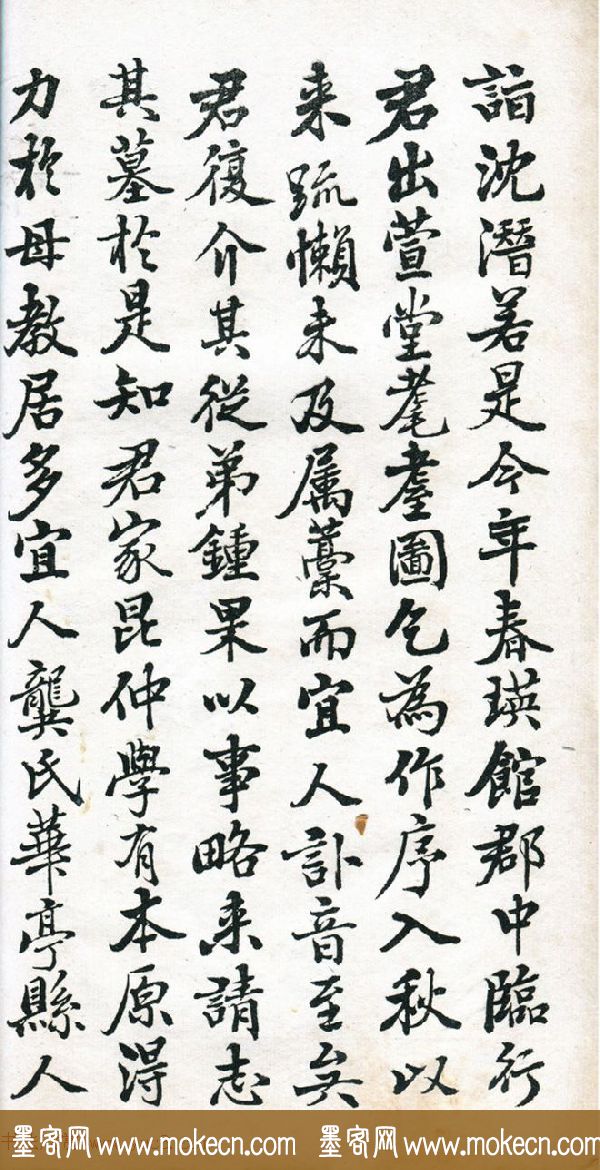 詣沈潛若是今年春瑛館郡中臨行
君出萱堂耄耋圖乞為作序入秋以
来疏懶未及属藁而宜人訃音至矣
君復介其從弟鍾果以事略来請志
其墓於是知君家昆仲學有本原得
力於母教居多宜人龔氏華亭縣人
墨客网 www.mokecn.com 墨客网 www.mokecn.com